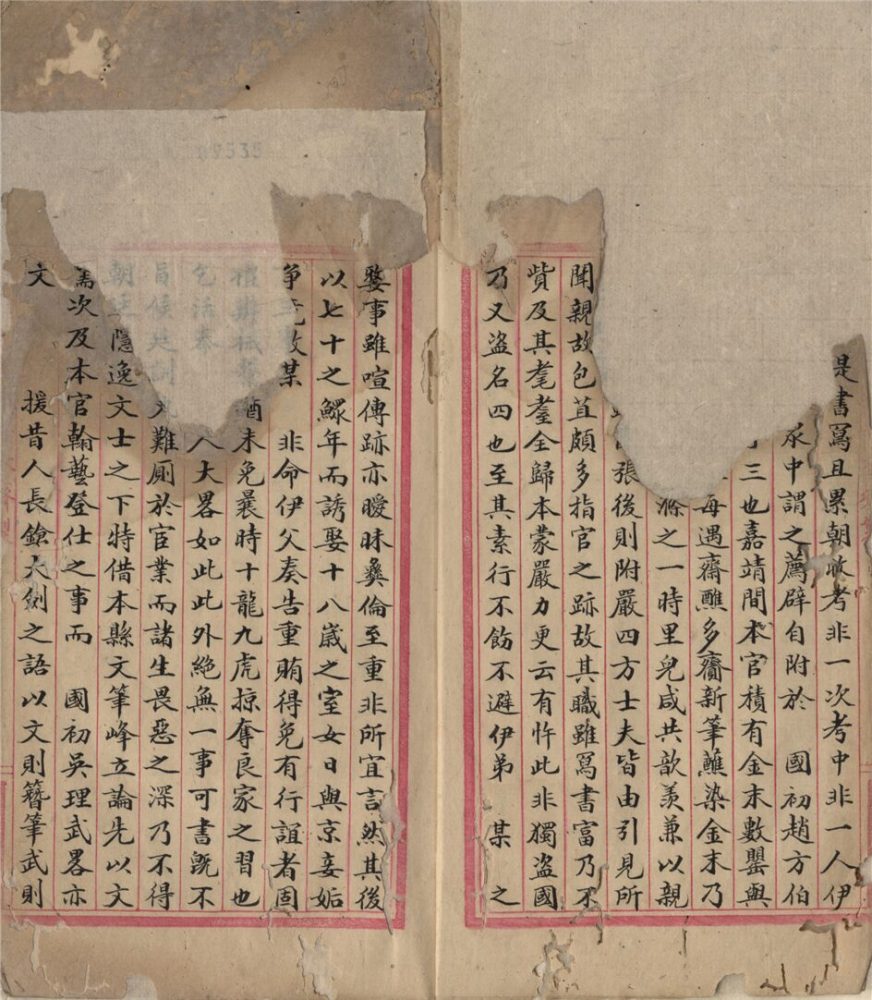 是書寫且累朝收考非一次考中非一人伊
中謂之薦辟自附於　國初趙方伯
三也嘉靖間本官積有金末數罌與
每遇齋醮多齎新筆蘸染金末乃
滌之一時里兒咸共歆羨兼以親
張後則附嚴四方士夫皆由引見所
聞親故包苴頗多指官之跡故其職雖寫書富乃不
貲及其耄耋全歸本蒙嚴力更云有忤此非獨盜國
乃又盜名四也至其素行不飭不避伊弟　某　之
娶事雖喧傳跡亦曖昧彝倫至重非所宜言然其後
以七十之鰥年而誘娶十八歲之室女日與京妾姤
爭　某　非命伊父奏告重賄得免有行誼者固
酒未免曩時十龍九虎掠奪良家之習也
人大畧如此此外絕無一事可書旣不
難厠於宦業而諸生畏惡之深乃不得
隱逸文士之下特借本縣文筆峰立論先以文
次及本官翰藝登仕之事而　國初吳理武畧亦
文　援昔人長鎗大劍之語以文則簪筆武則
09535